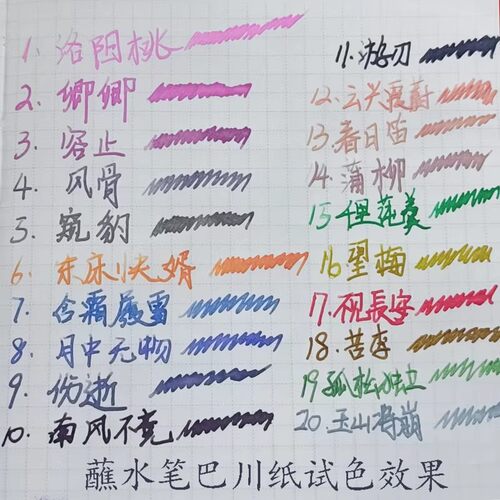 1. 洛阳桃
2. 卿卿
3. 容止
4. 风骨
5. 窥豹
6. 东床快婿
7. 含霜履雪
8. 月中无物
9. 伤逝
10. 南风不竞
11. 游刃
12. 云兴霞蔚
13. 春日笛
14. 蒲柳
15. 千里莼羹
16 望梅
17. 視長安
18. 苦李
19 孤松独立
20. 玉山将崩
蘸水笔巴川纸试色效果